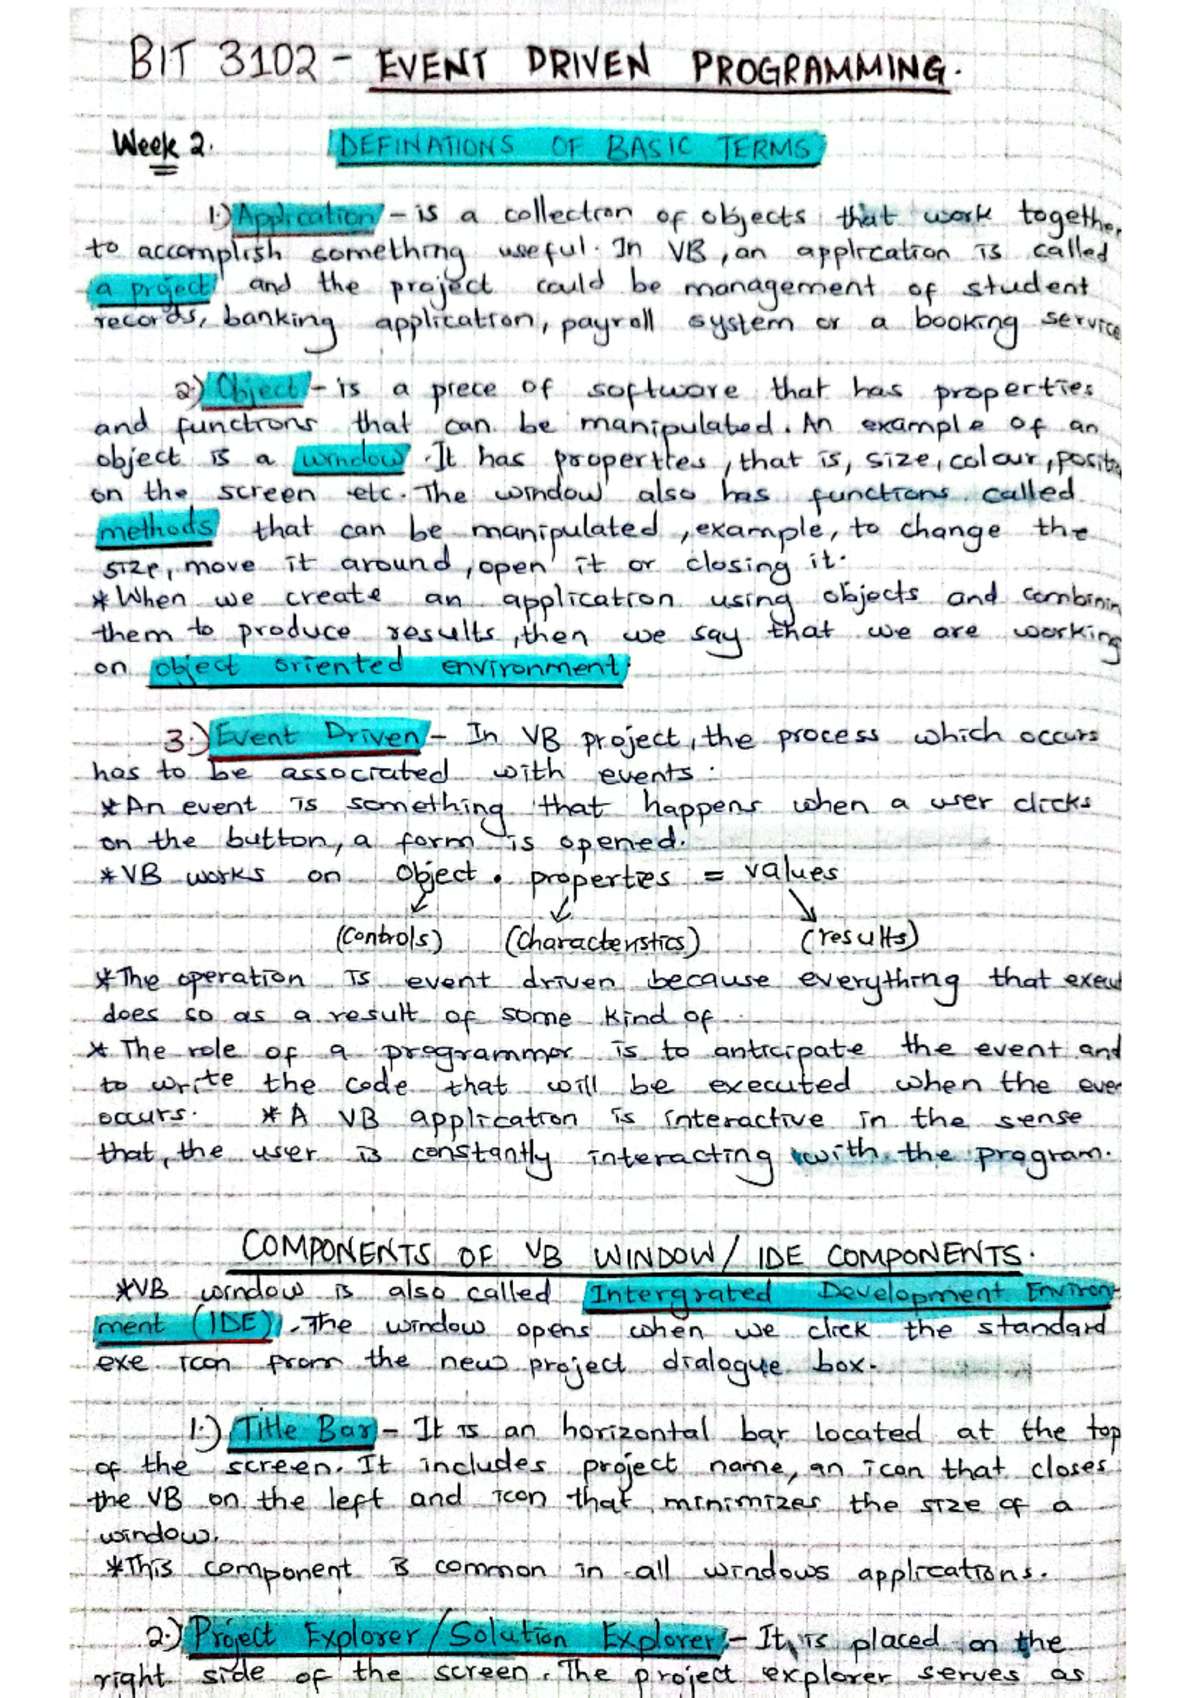 BIT 3102 - EVENT DRIVEN PROGRAMMING.
Week 2. DEFINATIONS OF BASIC TERMS
1.) Application - is a collection of objects that work together
to accomplish something useful. In VB, an application is called
a project and the project could be management of student
records, banking application, payroll system or a booking service
2.) Object - is a piece of software that has properties
and functions that can be manipulated. An example of an
object is a window. It has properties, that is, size, colour, posit
on the screen etc. The window also has functions called
methods that can be manipulated, example, to change the
size, move it around, open it or closing it.
* When we create an application using objects and combinin
them to produce results, then we say that we are working
on object oriented environment.
3.) Event Driven - In VB project, the process which occurs
has to be associated with events.
* An event is something that happens when a user clicks
on the button, a form is opened.
* VB works on object . properties = values
(controls) (characteristics) (results)
* The operation is event driven because everything that execu
does so as a result of some kind of
* The role of a programmer is to anticipate the event and
to write the code that will be executed when the eve
occurs. * A VB application is interactive in the sense
that, the user is constantly interacting with the program.
COMPONENTS OF VB WINDOW/ IDE COMPONENTS.
* VB window is also called Intergrated Development Environ-
ment (IDE). The window opens when we click the standard
exe icon from the new project dialogue box.
1.) Title Bar - It is an horizontal bar located at the top
of the screen. It includes project name, an icon that closes
the VB on the left and icon that minimizes the size of a
window.
* This component is common in all windows applications.
2.) Project Explorer/Solution Explorer - It is placed on the
right side of the screen. The project explorer serves as